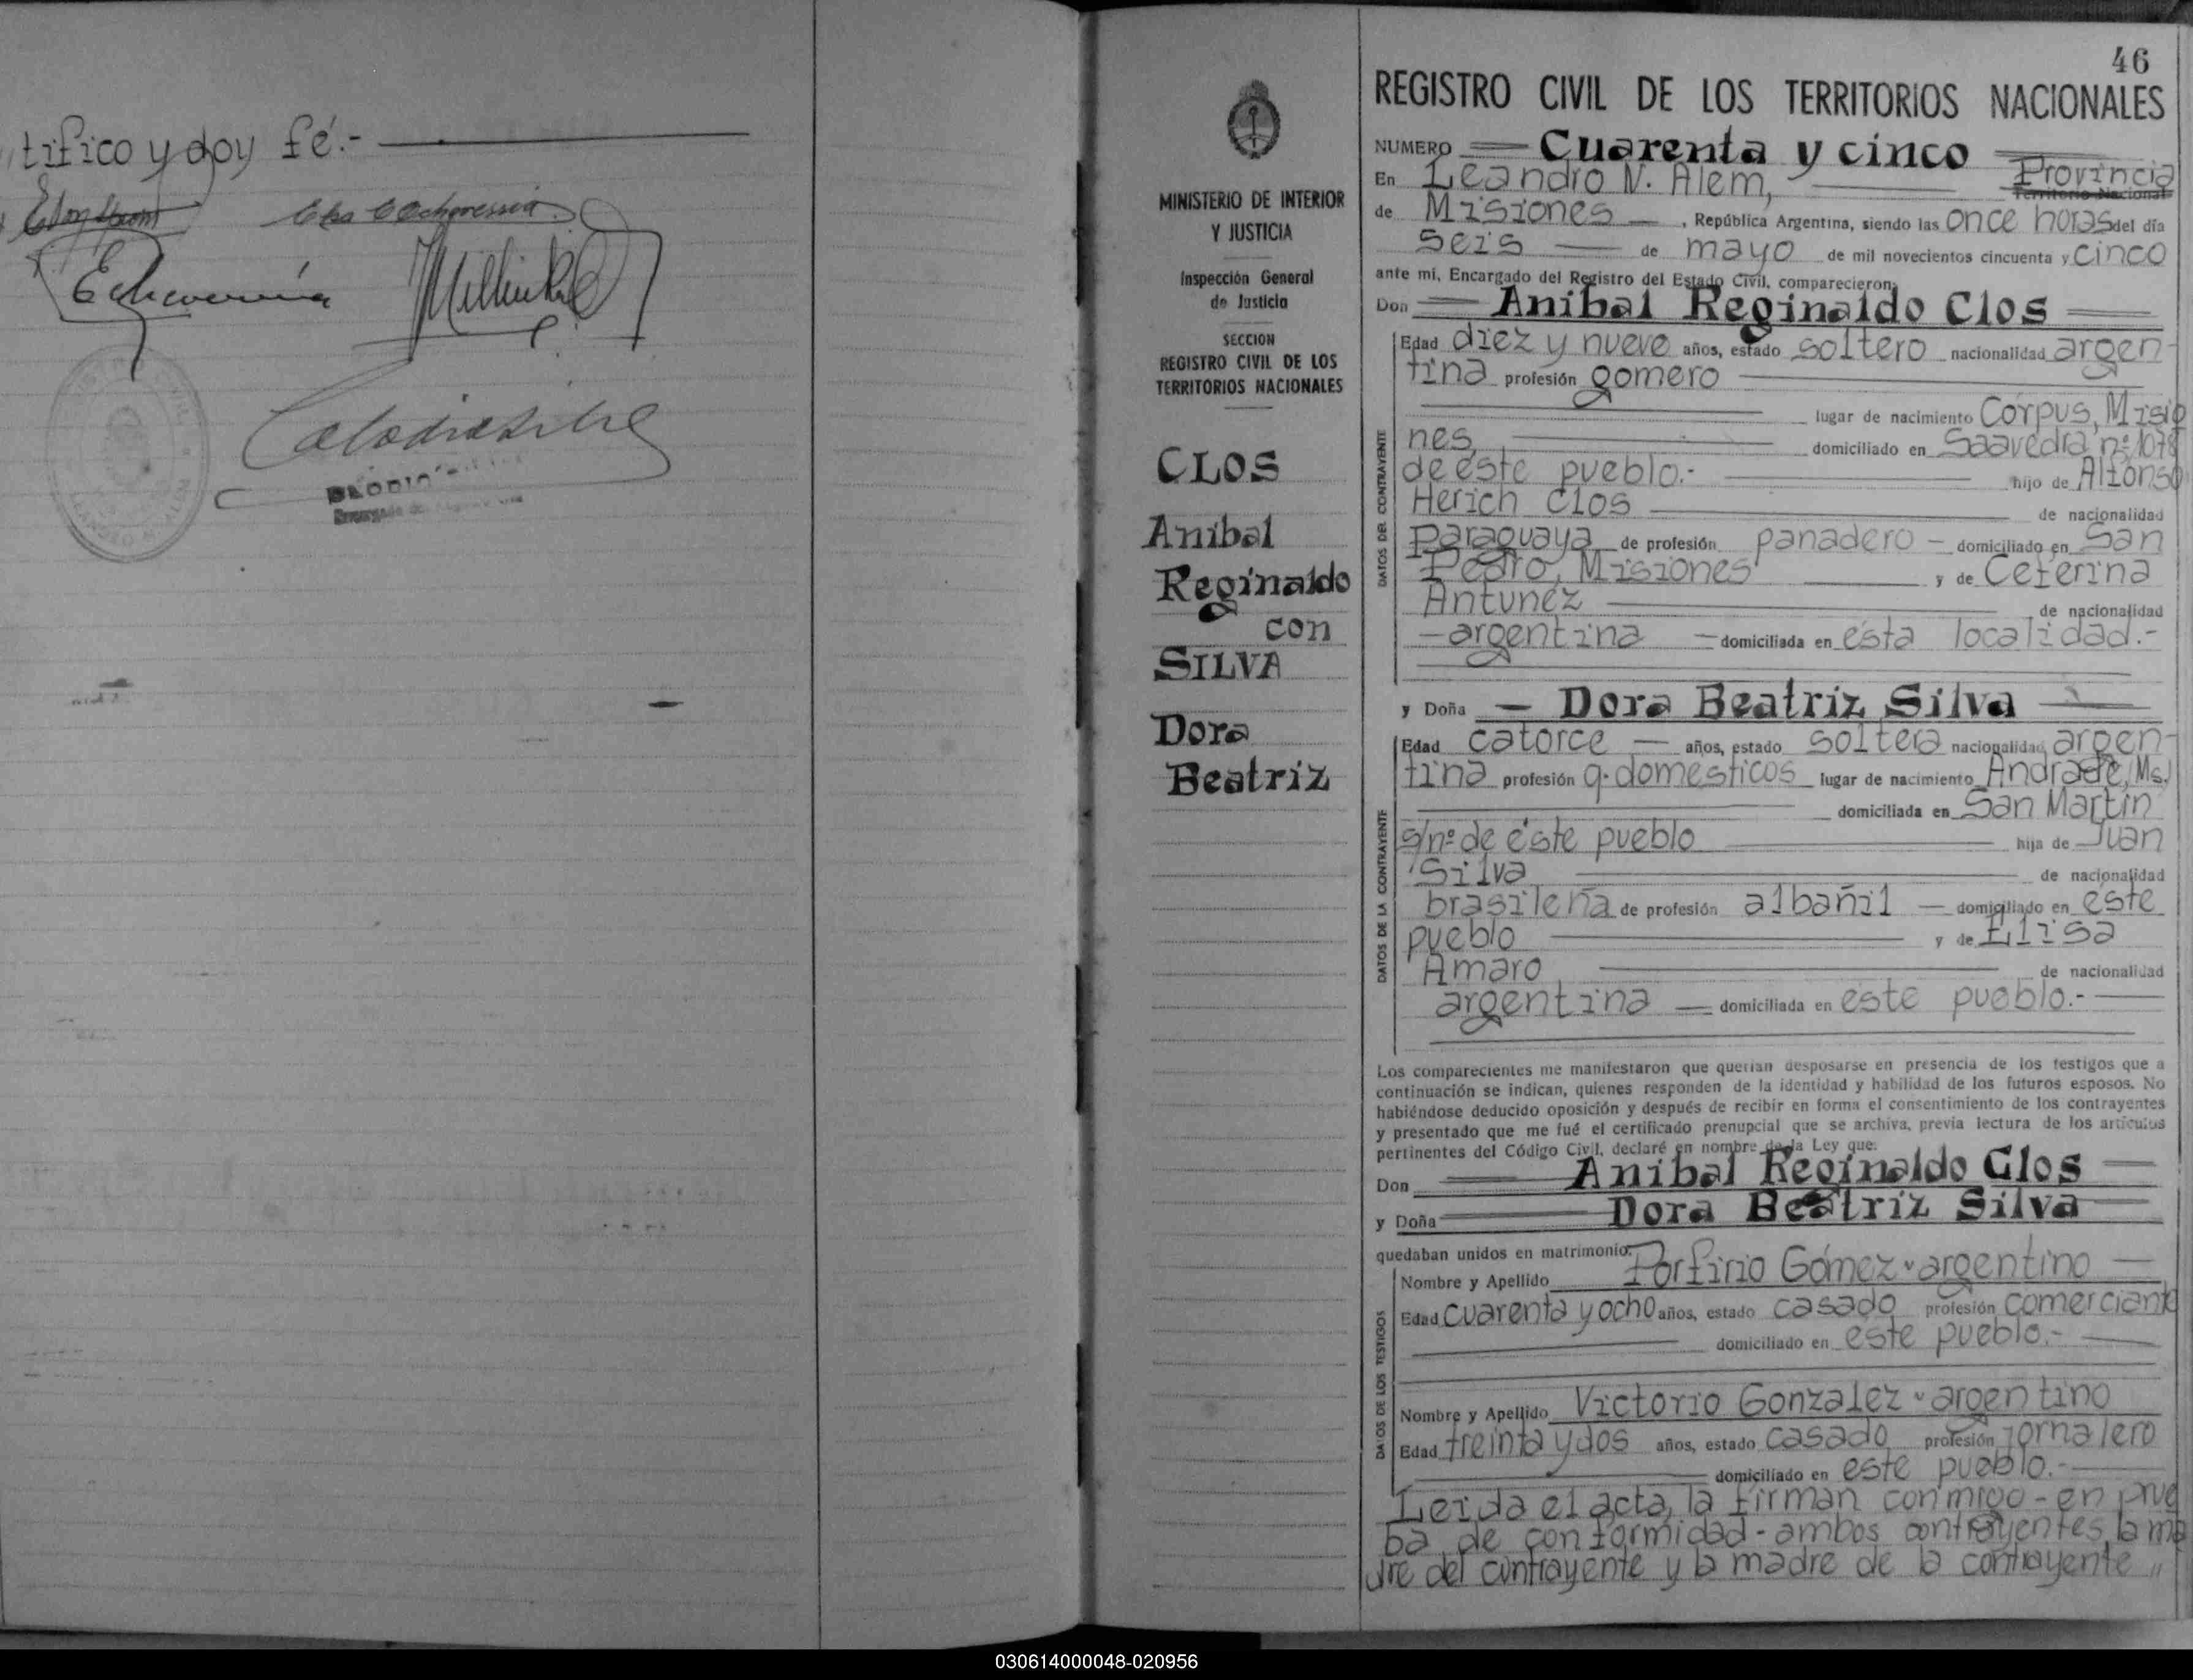 tifico y doy fé.-
Echeverría
46
REGISTRO CIVIL DE LOS TERRITORIOS NACIONALES
NUMERO Cuarenta y cinco
En Leandro N. Alem, Provincia
Territorio Nacional
de Misiones , República Argentina, siendo las once horas del día
seis de mayo de mil novecientos cincuenta y cinco
ante mí, Encargado del Registro del Estado Civil, comparecieron:
Don Anibal Reginaldo Clos
Edad diez y nueve años, estado soltero nacionalidad argen-
tina profesión gomero
lugar de nacimiento Corpus, Misio
nes, domiciliado en Saavedra nº 1078
de éste pueblo.- hijo de Alfonso
Herich Clos de nacionalidad
Paraguaya de profesión panadero - domiciliado en San
Pedro, Misiones y de Ceferina
Antunez de nacionalidad
argentina domiciliada en ésta localidad.-
y Doña Dora Beatriz Silva
Edad catorce años, estado soltera nacionalidad argen-
tina profesión q. domésticos lugar de nacimiento Andrade, (Ms.)
domiciliada en San Martín
s/nº de éste pueblo hija de Juan
Silva de nacionalidad
brasileña de profesión albañil domiciliado en éste
pueblo y de Elisa
Amaro de nacionalidad
argentina domiciliada en éste pueblo.-
DATOS DEL CONTRAYENTE
DATOS DE LA CONTRAYENTE
Los comparecientes me manifestaron que querían desposarse en presencia de los testigos que a
continuación se indican, quienes responden de la identidad y habilidad de los futuros esposos. No
habiéndose deducido oposición y después de recibir en forma el consentimiento de los contrayentes
y presentado que me fué el certificado prenupcial que se archiva, previa lectura de los artículos
pertinentes del Código Civil, declaré en nombre de la Ley que:
Don Anibal Reginaldo Clos
y Doña Dora Beatriz Silva
quedaban unidos en matrimonio.
Nombre y Apellido Porfirio Gómez - argentino
Edad cuarenta y ocho años, estado casado profesión comerciante
domiciliado en este pueblo.-
Nombre y Apellido Victorio Gonzalez - argentino
Edad treinta y dos años, estado casado profesión jornalero
domiciliado en este pueblo.-
DATOS DE LOS TESTIGOS
Leida el acta, la firman conmigo - en prue
ba de conformidad - ambos contrayentes, la ma
dre del contrayente y la madre de la contrayente "
MINISTERIO DE INTERIOR
Y JUSTICIA
Inspección General
de Justicia
SECCION
REGISTRO CIVIL DE LOS
TERRITORIOS NACIONALES
CLOS
Anibal
Reginaldo
con
SILVA
Dora
Beatriz
030614000048-020956